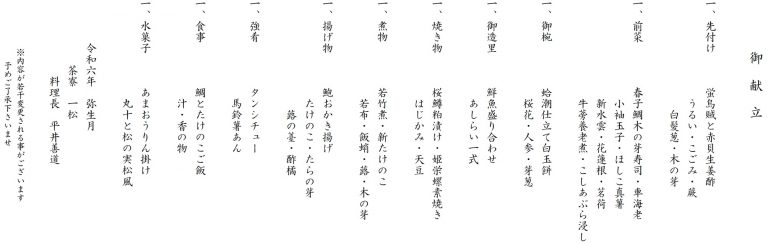 御献立
一、先付け
蛍烏賊と赤貝生姜酢
うるい・こごみ・蕨
白髪葱・木の芽
一、前菜
春子鯛木の芽寿司・車海老
小袖玉子・ほしこ真薯
新水雲・花蓮根・茗荷
牛蒡養老煮・こしあぶら浸し
一、御椀
蛤潮仕立て白玉餅
桜花・人参・芽葱
一、御造里
鮮魚盛り合わせ
あしらい一式
一、焼き物
桜鱒粕漬け・姫栄螺素焼き
はじかみ・天豆
一、煮物
若竹煮・新たけのこ
若布・飯蛸・蕗・木の芽
一、揚げ物
鮑おかき揚げ
たけのこ・たらの芽
蕗の薹・酢橘
一、強肴
タンシチュー
馬鈴薯あん
一、食事
鯛とたけのこご飯
汁・香の物
一、水菓子
あまおうりん掛け
丸十と松の実松風
令和六年 弥生月
茶寮 一松
料理長 平井善道
※内容が若干変更される事がございます
予めご了承下さいませ